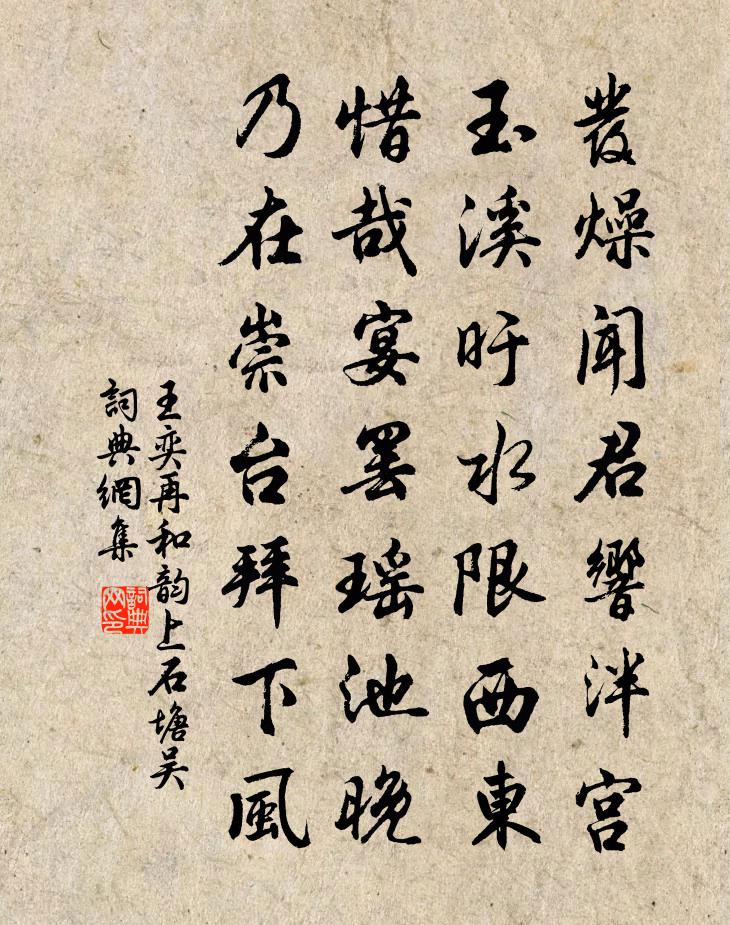 發燥聞君響泮宮
玉溪盱水限西東
惜哉宴罢瑶池晚
乃在崇台拜下風
王奕再和韵上石塘吴
詞典網集
詞典網印